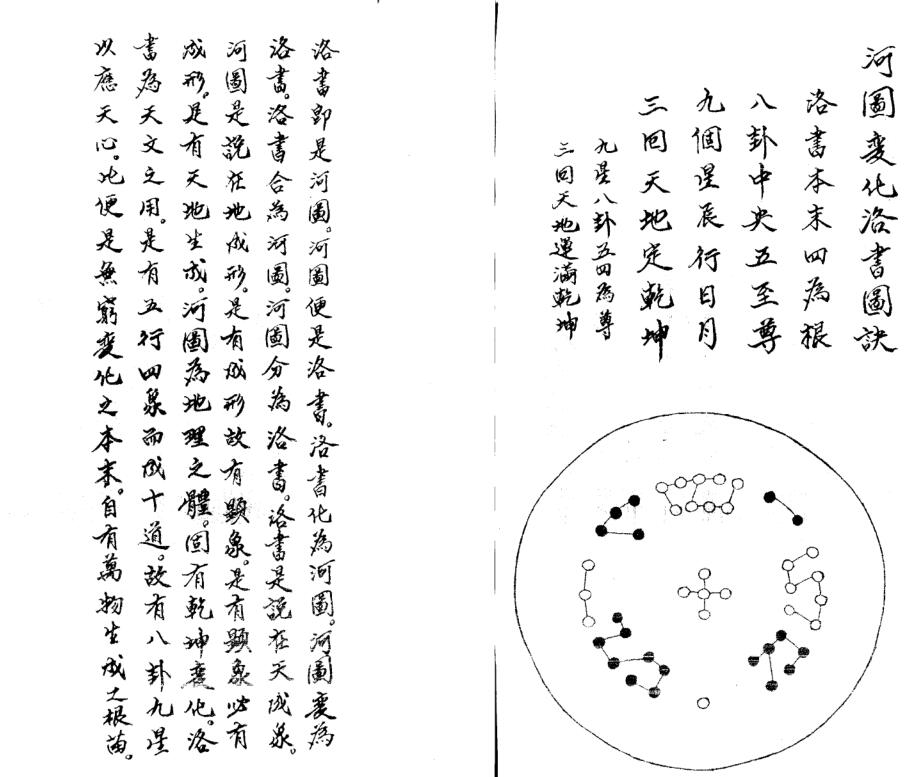 河圖变化洛書圖訣
洛書本末四為根
八卦中央五至尊
九個星辰行日月
三回天地定乾坤
九星八卦五四為尊
三回天地運滿乾坤
洛書即是河圖。河圖便是洛書。洛書化為河圖。河圖变為
洛書。洛書合為河圖。河圖分為洛書。洛書是說在天成象。
河圖是說在地成形。是有成形故有顕象。是有顕象必有
成形。是有天地生成。河圖為地理之體。固有乾坤变化。洛
書為天文之用。是有五行四象而成十道。故有八卦九星
以應天心。此便是無窮变化之本末。自有萬物生成之根苗。